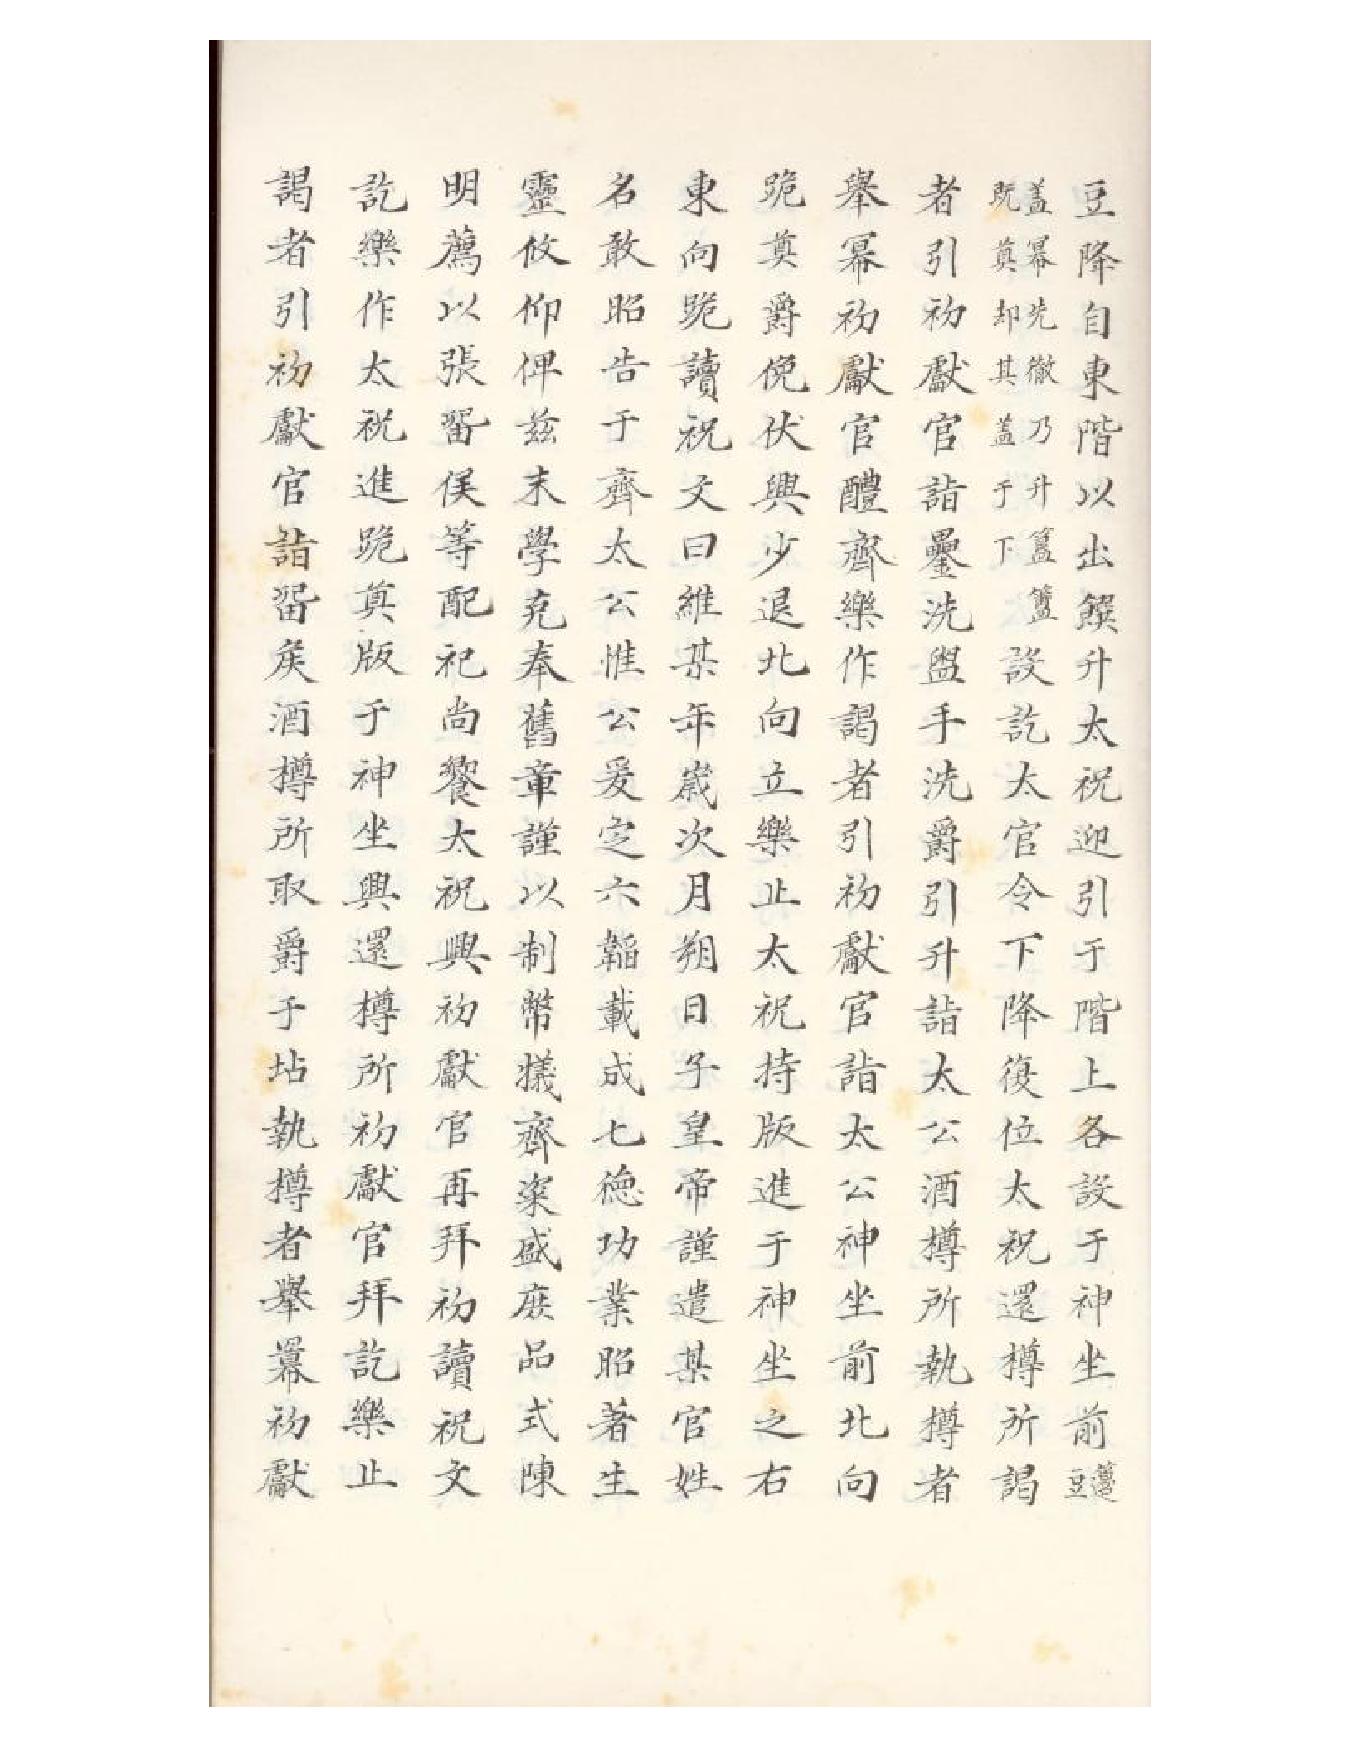 豆降自東階以出饌升太祝迎引于階上各設于神坐前籩豆
盖冪先徹乃升簋簠既奠却其盖于下設訖太官令下降復位太祝還樽所謁
者引初獻官詣罍洗盥手洗爵引升詣太公酒樽所執樽者
舉冪初獻官醴齊樂作謁者引初獻官詣太公神坐前北向
跪奠爵俛伏興少退北向立樂止太祝持版進于神坐之右
東向跪讀祝文曰維某年歲次月朔日子皇帝謹遣某官姓
名敢昭告于齊太公惟公爰定六韜載成七德功業昭著生
靈攸仰俾茲末學克奉舊章謹以制幣犧齊粢盛庶品式陳
明薦以張留侯等配祀尚饗太祝興初獻官再拜初讀祝文
訖樂作太祝進跪奠版于神坐興還樽所初獻官拜訖樂止
謁者引初獻官詣留侯酒樽所取爵于坫執樽者舉冪初獻